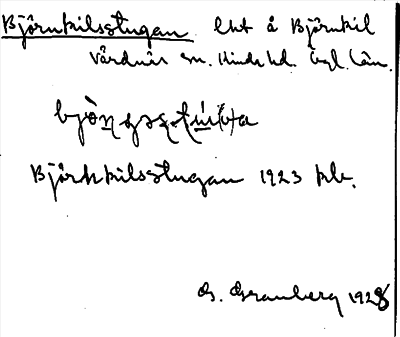 Björnkilsstugan lht å Björnkil
Vårdnäs sn. Kinds hd. Ögl. län.
Björkkilsstugan 1923 kb.
G. Granberg 1928